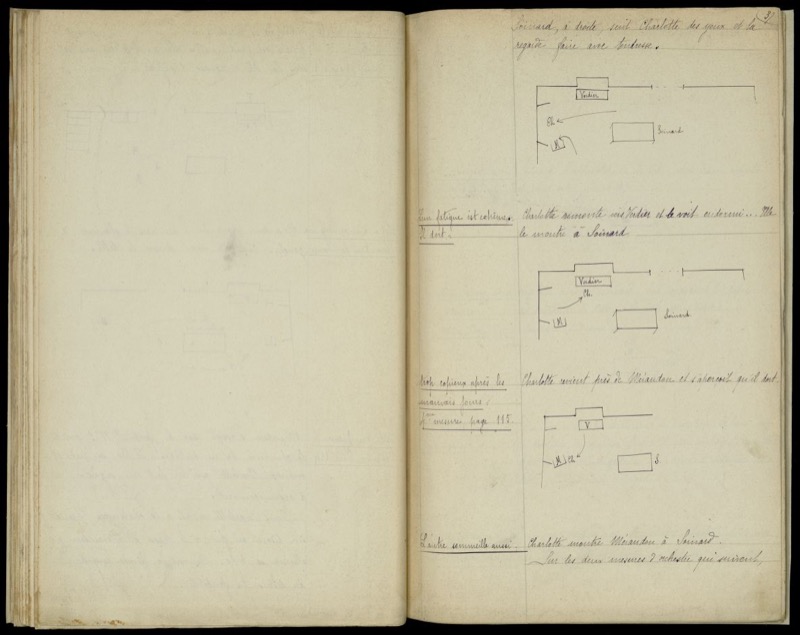 Soinard, à droite, suit Charlotte des yeux et la
regarde faire avec tendresse.
Verdier
Ch
M
Soinard
fatigue est extrême.
Il dort.
Charlotte remonte vers Verdier et le voit endormi... Elle
le montre à Soinard
Verdier
Ch
M
Soinard
copieux après les
mauvais jours,
mesure page 115.
Charlotte revient près de Mérandon et s'aperçoit qu'il dort
V
M Ch
S
L'autre sommeille aussi.
Charlotte montre Mérandon à Soinard.
Sur les deux mesures d'orchestre qui suivent,